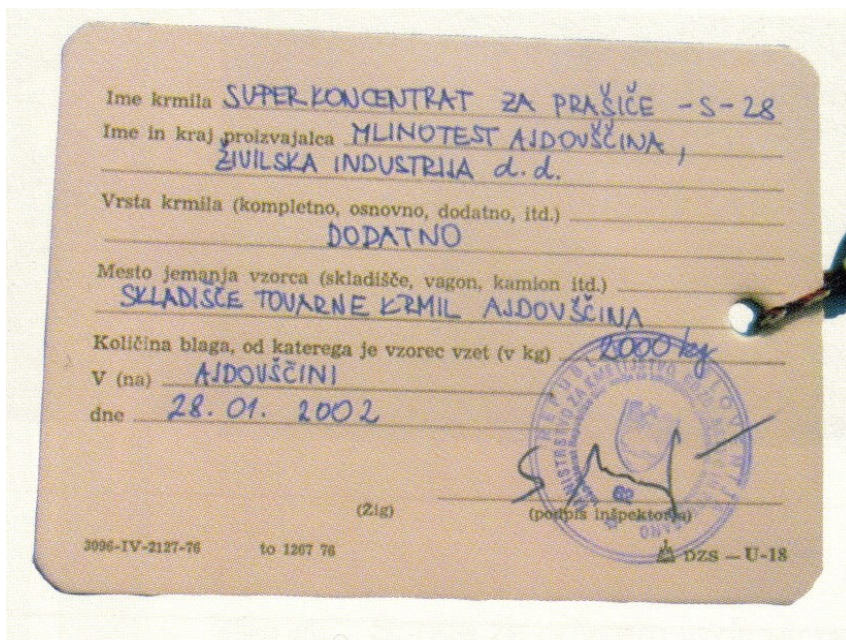 Ime krmila SUPERKONCENTRAT ZA PRAŠIČE - S - 28
Ime in kraj proizvajalca MLINOTEST AJDOVŠČINA,
ŽIVILSKA INDUSTRIJA d.d.
Vrsta krmila (kompletno, osnovno, dodatno, itd.)
DODATNO
Mesto jemanja vzorca (skladišče, vagon, kamion itd.)
SKLADIŠČE TOVARNE KRMIL AJDOVŠČINA
Količina blaga, od katerega je vzorec vzet (v kg) 2000 kg
V (na) AJDOVŠČINI
dne 28. 01. 2002
REPUBLIKA SLOVENIJA
MINISTRSTVO ZA KMETIJSTVO, GOZD
(Žig)
(podpis inšpektorja)
3096-IV-2127-76 to 1267 76 DZS — U-18